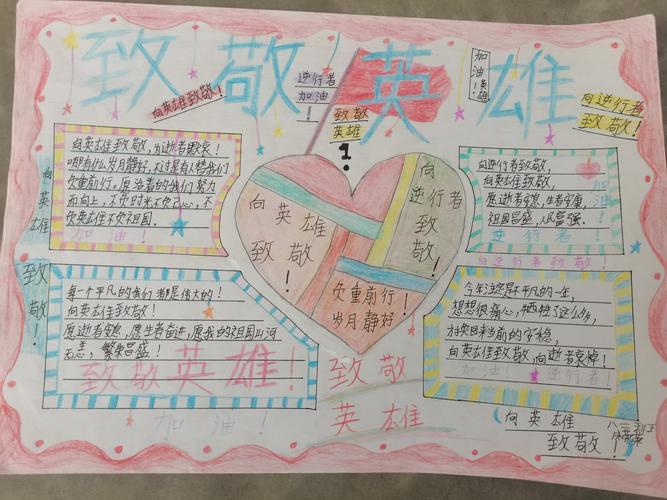 致敬英雄
向英雄致敬！
逆行者
加油！
致敬
英雄
加油！英雄
向逆行者
致敬！
向英雄致敬，为逝者默哀！
哪有什么岁月静好，不过是有人替我们
负重前行，愿活着的我们努力
而向上，不负时光不负己心，不
负英雄不负祖国。
加油！
向英雄
致敬！
向英雄
致敬！
向逆行者
致敬！
负重前行！
岁月静好！
向逆行者致敬，
向英雄致敬，
愿逝者安息，生者安康，
祖国昌盛，人民富强。
逆行者！
加油！
向逆行者致敬！
每一个平凡的我们都是伟大的！
向英雄致敬！
愿逝者安息，愿生者奋进，愿我的祖国山河
无恙，繁荣昌盛！
致敬英雄！
加油！
致敬
英雄
今年注定是不平凡的一年，
想想很痛心，牺牲了这么多，
才换回来当前的安稳，
向英雄致敬，向逝者哀悼！
加油！逆行者！
向英雄
致敬！